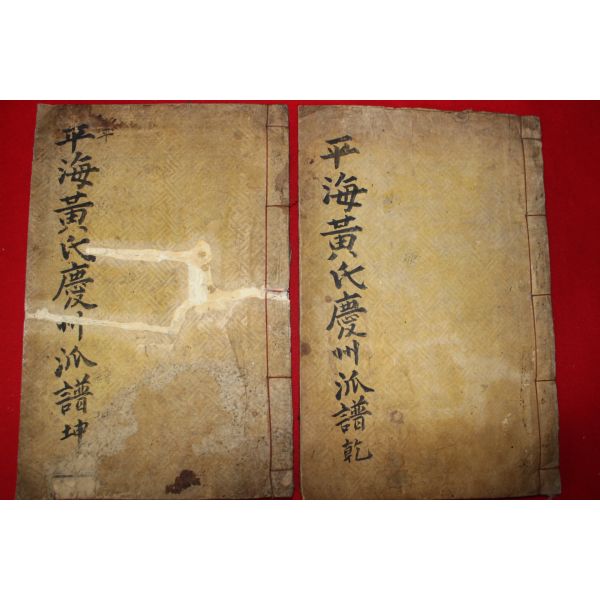 平海黃氏慶州派譜 乾
平海黃氏慶州派譜 坤
平